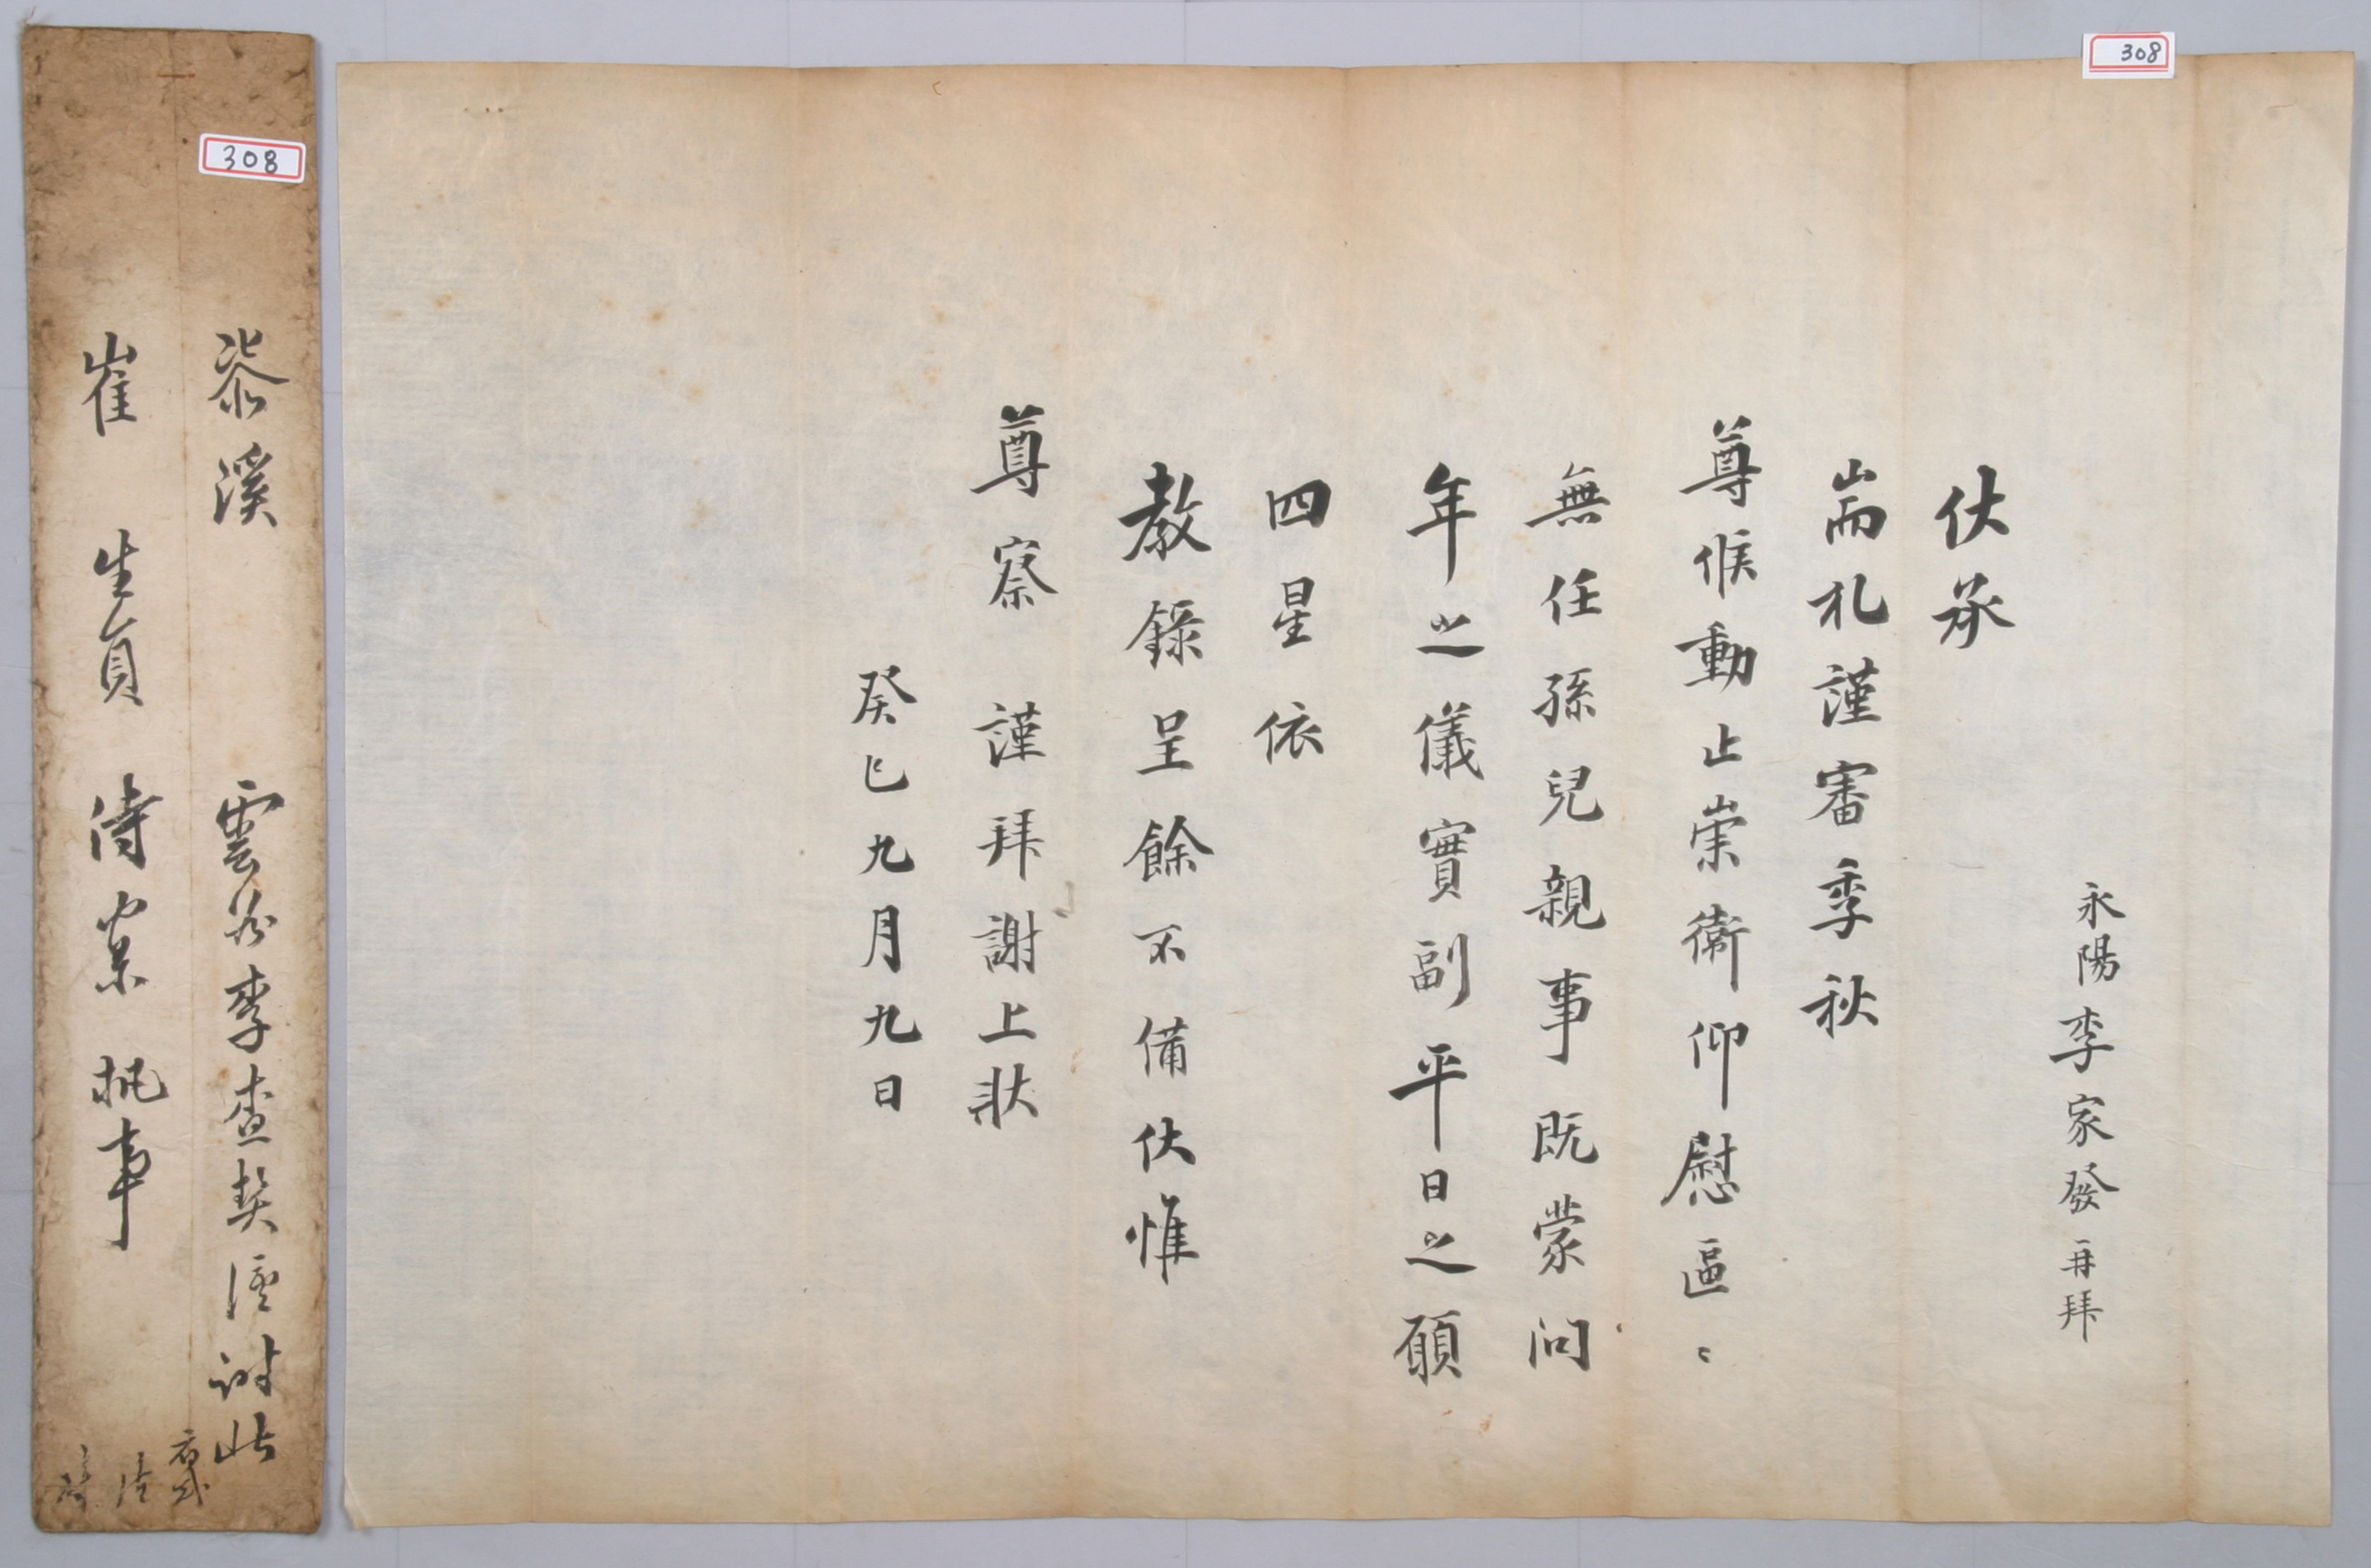 308
永陽李家發再拜
伏承
耑札謹審季秋
尊候動止崇衛仰慰區〻
無任孫兒親事既蒙問
年之儀實副平日之願
四星依
教錄呈餘不備伏惟
尊察 謹拜謝上狀
癸巳九月九日
308
溪 雲谷李査契 謝
崔 生員 侍案 執事